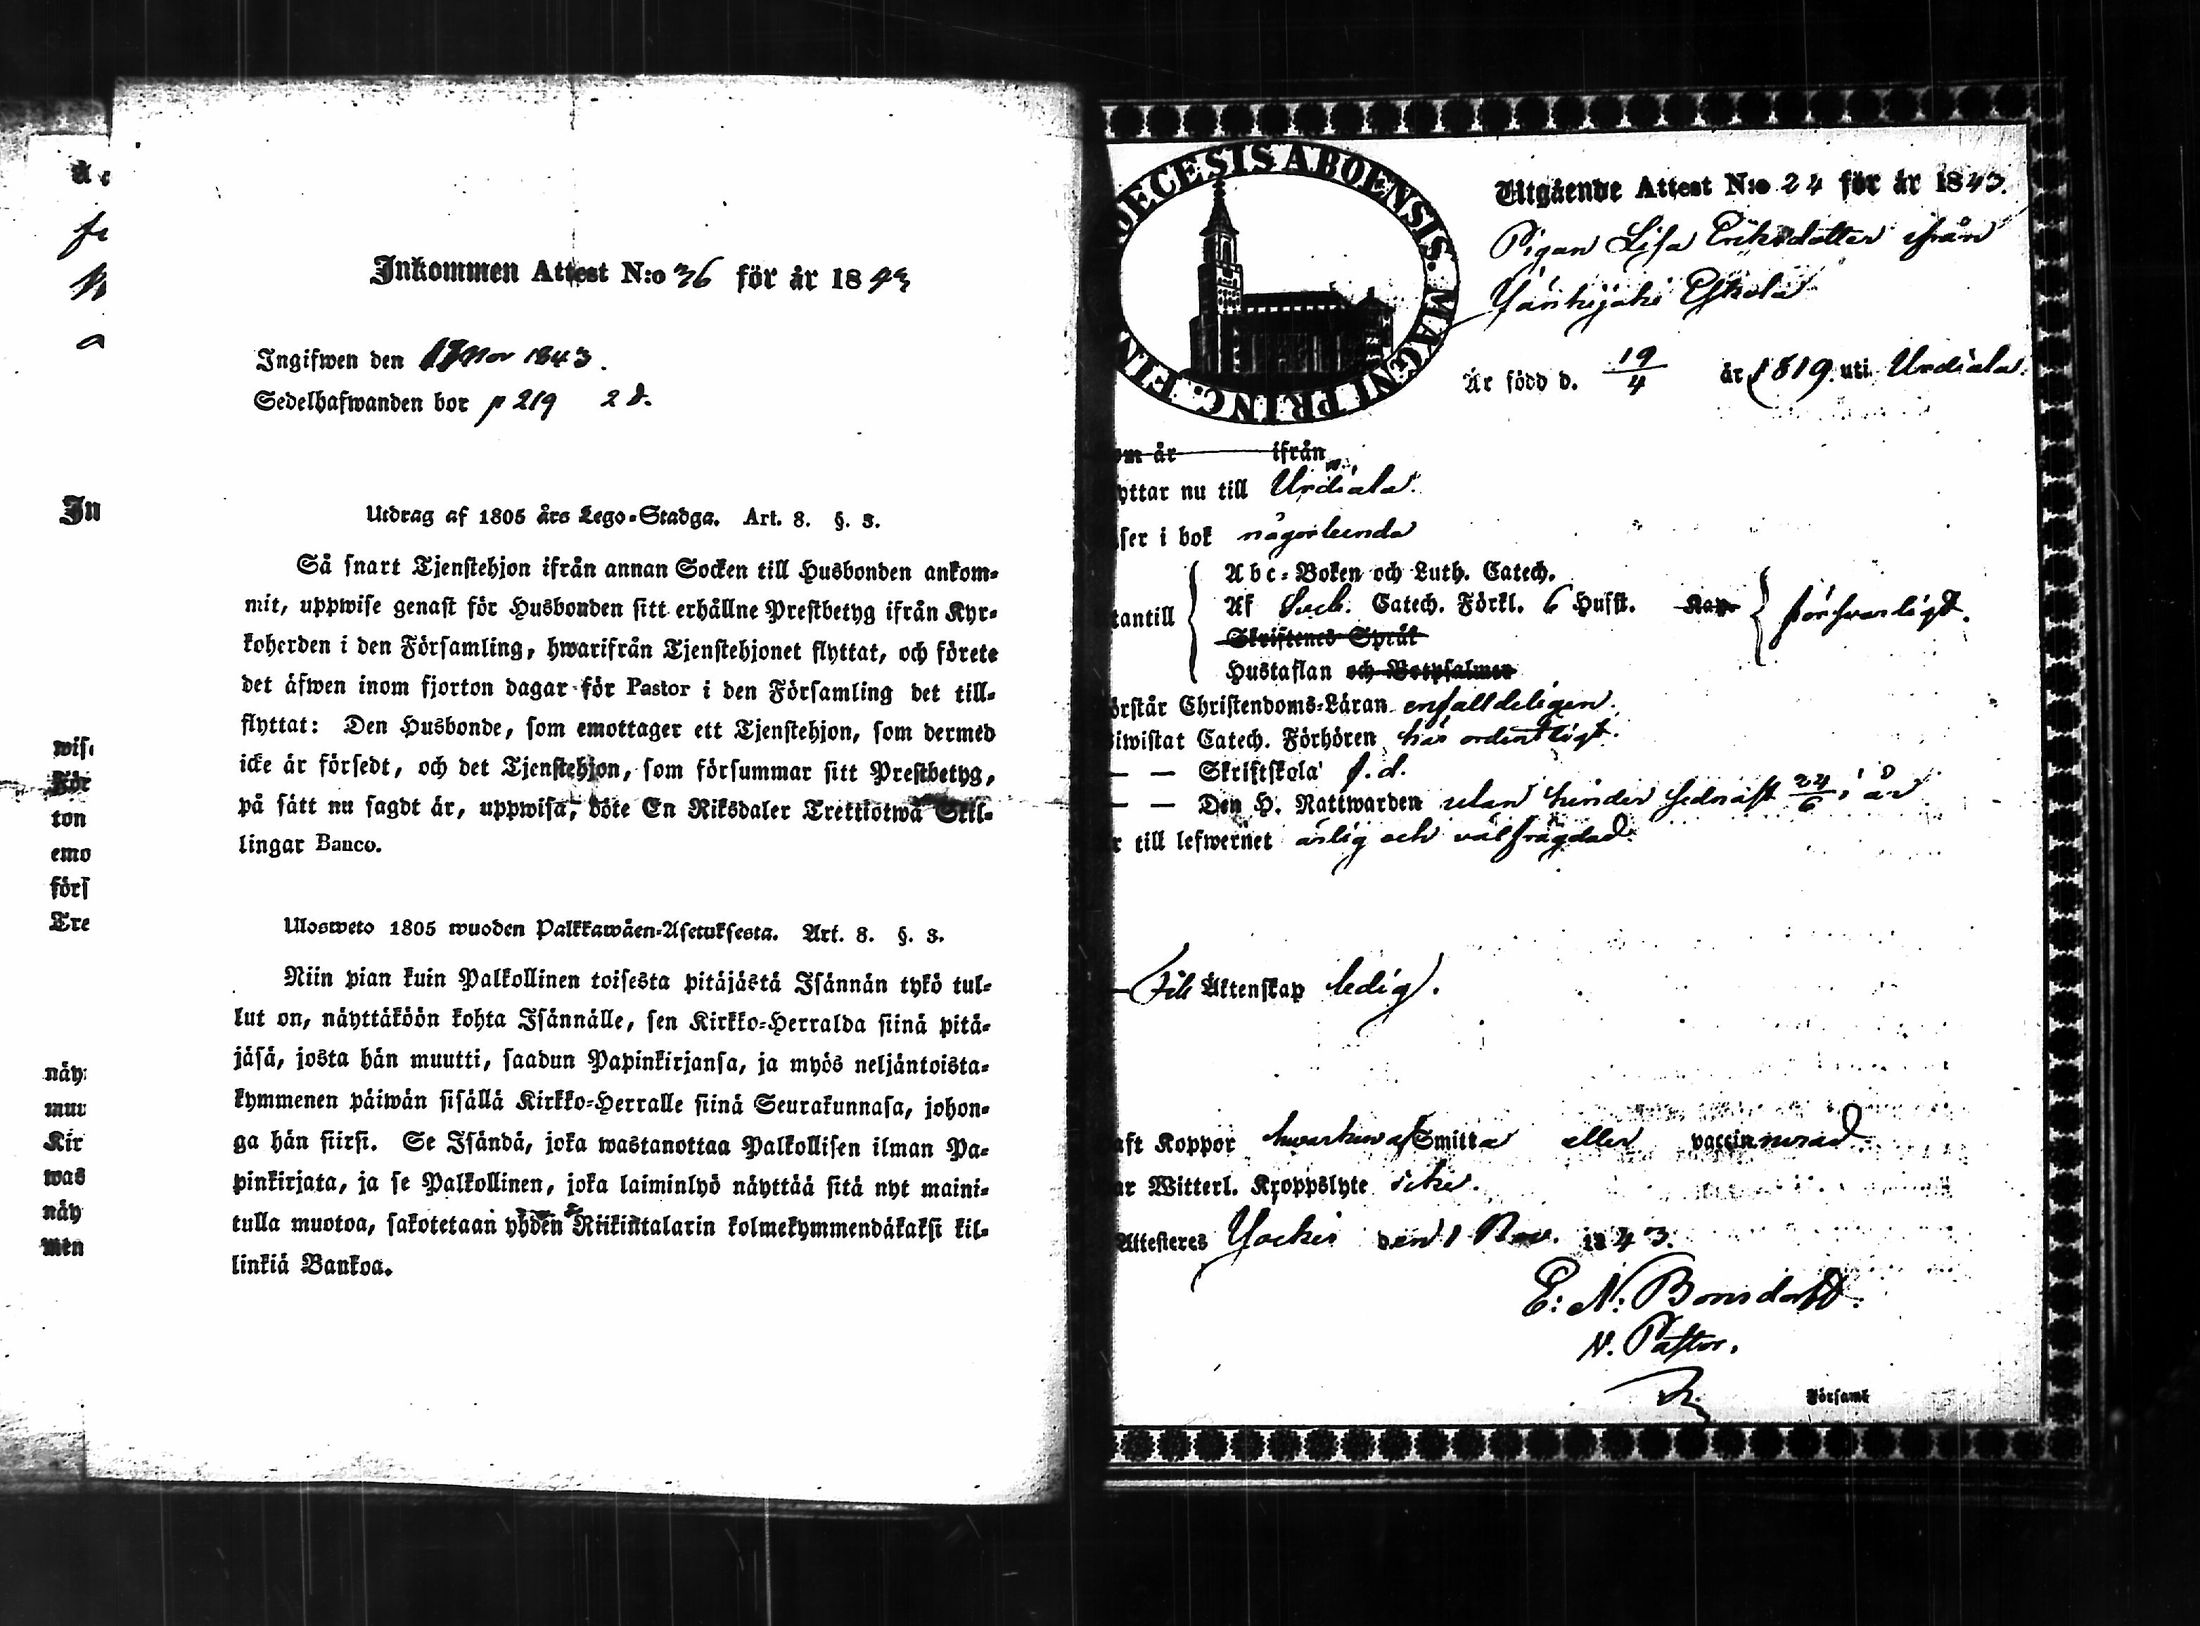 Inkommen Attest N:o 36 för år 1843
Ingifwen den 17 Nov 1843.
Sedelhafwanden bor p 219 2 d.
Utdrag af 1805 års Lego-Stadga. Art. 8. §. 3.
Så snart Tjenstehjon ifrån annan Socken till Husbonden ankom-
mit, uppwise genast för Husbonden sitt erhållne Prestbetyg ifrån Kyr-
koherden i den Församling, hwarifrån Tjenstehjonet flyttat, och förete
det äfwen inom fjorton dagar för Pastor i den Församling det till-
flyttat: Den Husbonde, som emottager ett Tjenstehjon, som dermed
icke är försedt, och det Tjenstehjon, som försummar sitt Prestbetyg,
på sätt nu sagdt är, uppwisa, böte En Riksdaler Trettiotwå Skil-
lingar Banco.
Ulosweto 1805 wuoden Palkkawäen-Asetuksesta. Art. 8. §. 3.
Niin pian kuin Palkollinen toisesta pitäjästä Isännän tykö tul-
lut on, näyttäköön kohta Isännälle, sen Kirkko-Herralda siinä pitä-
jäsä, josta hän muutti, saadun Papinkirjansa, ja myös neljäntoista-
kymmenen päiwän sisällä Kirkko-Herralle siinä Seurakunnasa, johon-
ga hän siirsi. Se Isändä, joka wastanottaa Palkollisen ilman Pa-
pinkirjata, ja se Palkollinen, joka laiminlyö näyttää sitä nyt maini-
tulla muotoa, sakotetaan yhden Riikintalarin kolmekymmendäkaksi kil-
linkiä Bankoa.
DECESIS ABOENSIS. MAGNI PRINC. FIN
Utgående Attest N:o 24 för år 1843.
Pigan Lisa Eriksdotter ifrån
Jänhijoki Eskola
Är född d. 19/4 år 1819. uti Urdiala.
om år ifrån
yttar nu till Urdiala.
äser i bok någorlunda
Abc-Boken och Luth. Catech.
tantill Af Sveb. Catech. Förkl. 6 Husst. Kap. försvarligt.
Skriftenes Språk
Hustaflan och Botpsalmer
örstår Christendoms-Läran enfalldeligen.
iwistat Catech. Förhören här ordentligt.
— — Skriftskola f. d.
— — Den H. Nattwarden utan hinder sednast 24/6 i år
r till lefwernet ärlig och välfrägdad.
— Till Äktenskap ledig.
aft Koppor hvarken af Smitta eller vaccinerad.
ar Witterl. Kroppslyte icke.
Attesteres Jockis den 1 Nov. 1843.
E: N: Bonsdorff.
N. Pastor.
Församl